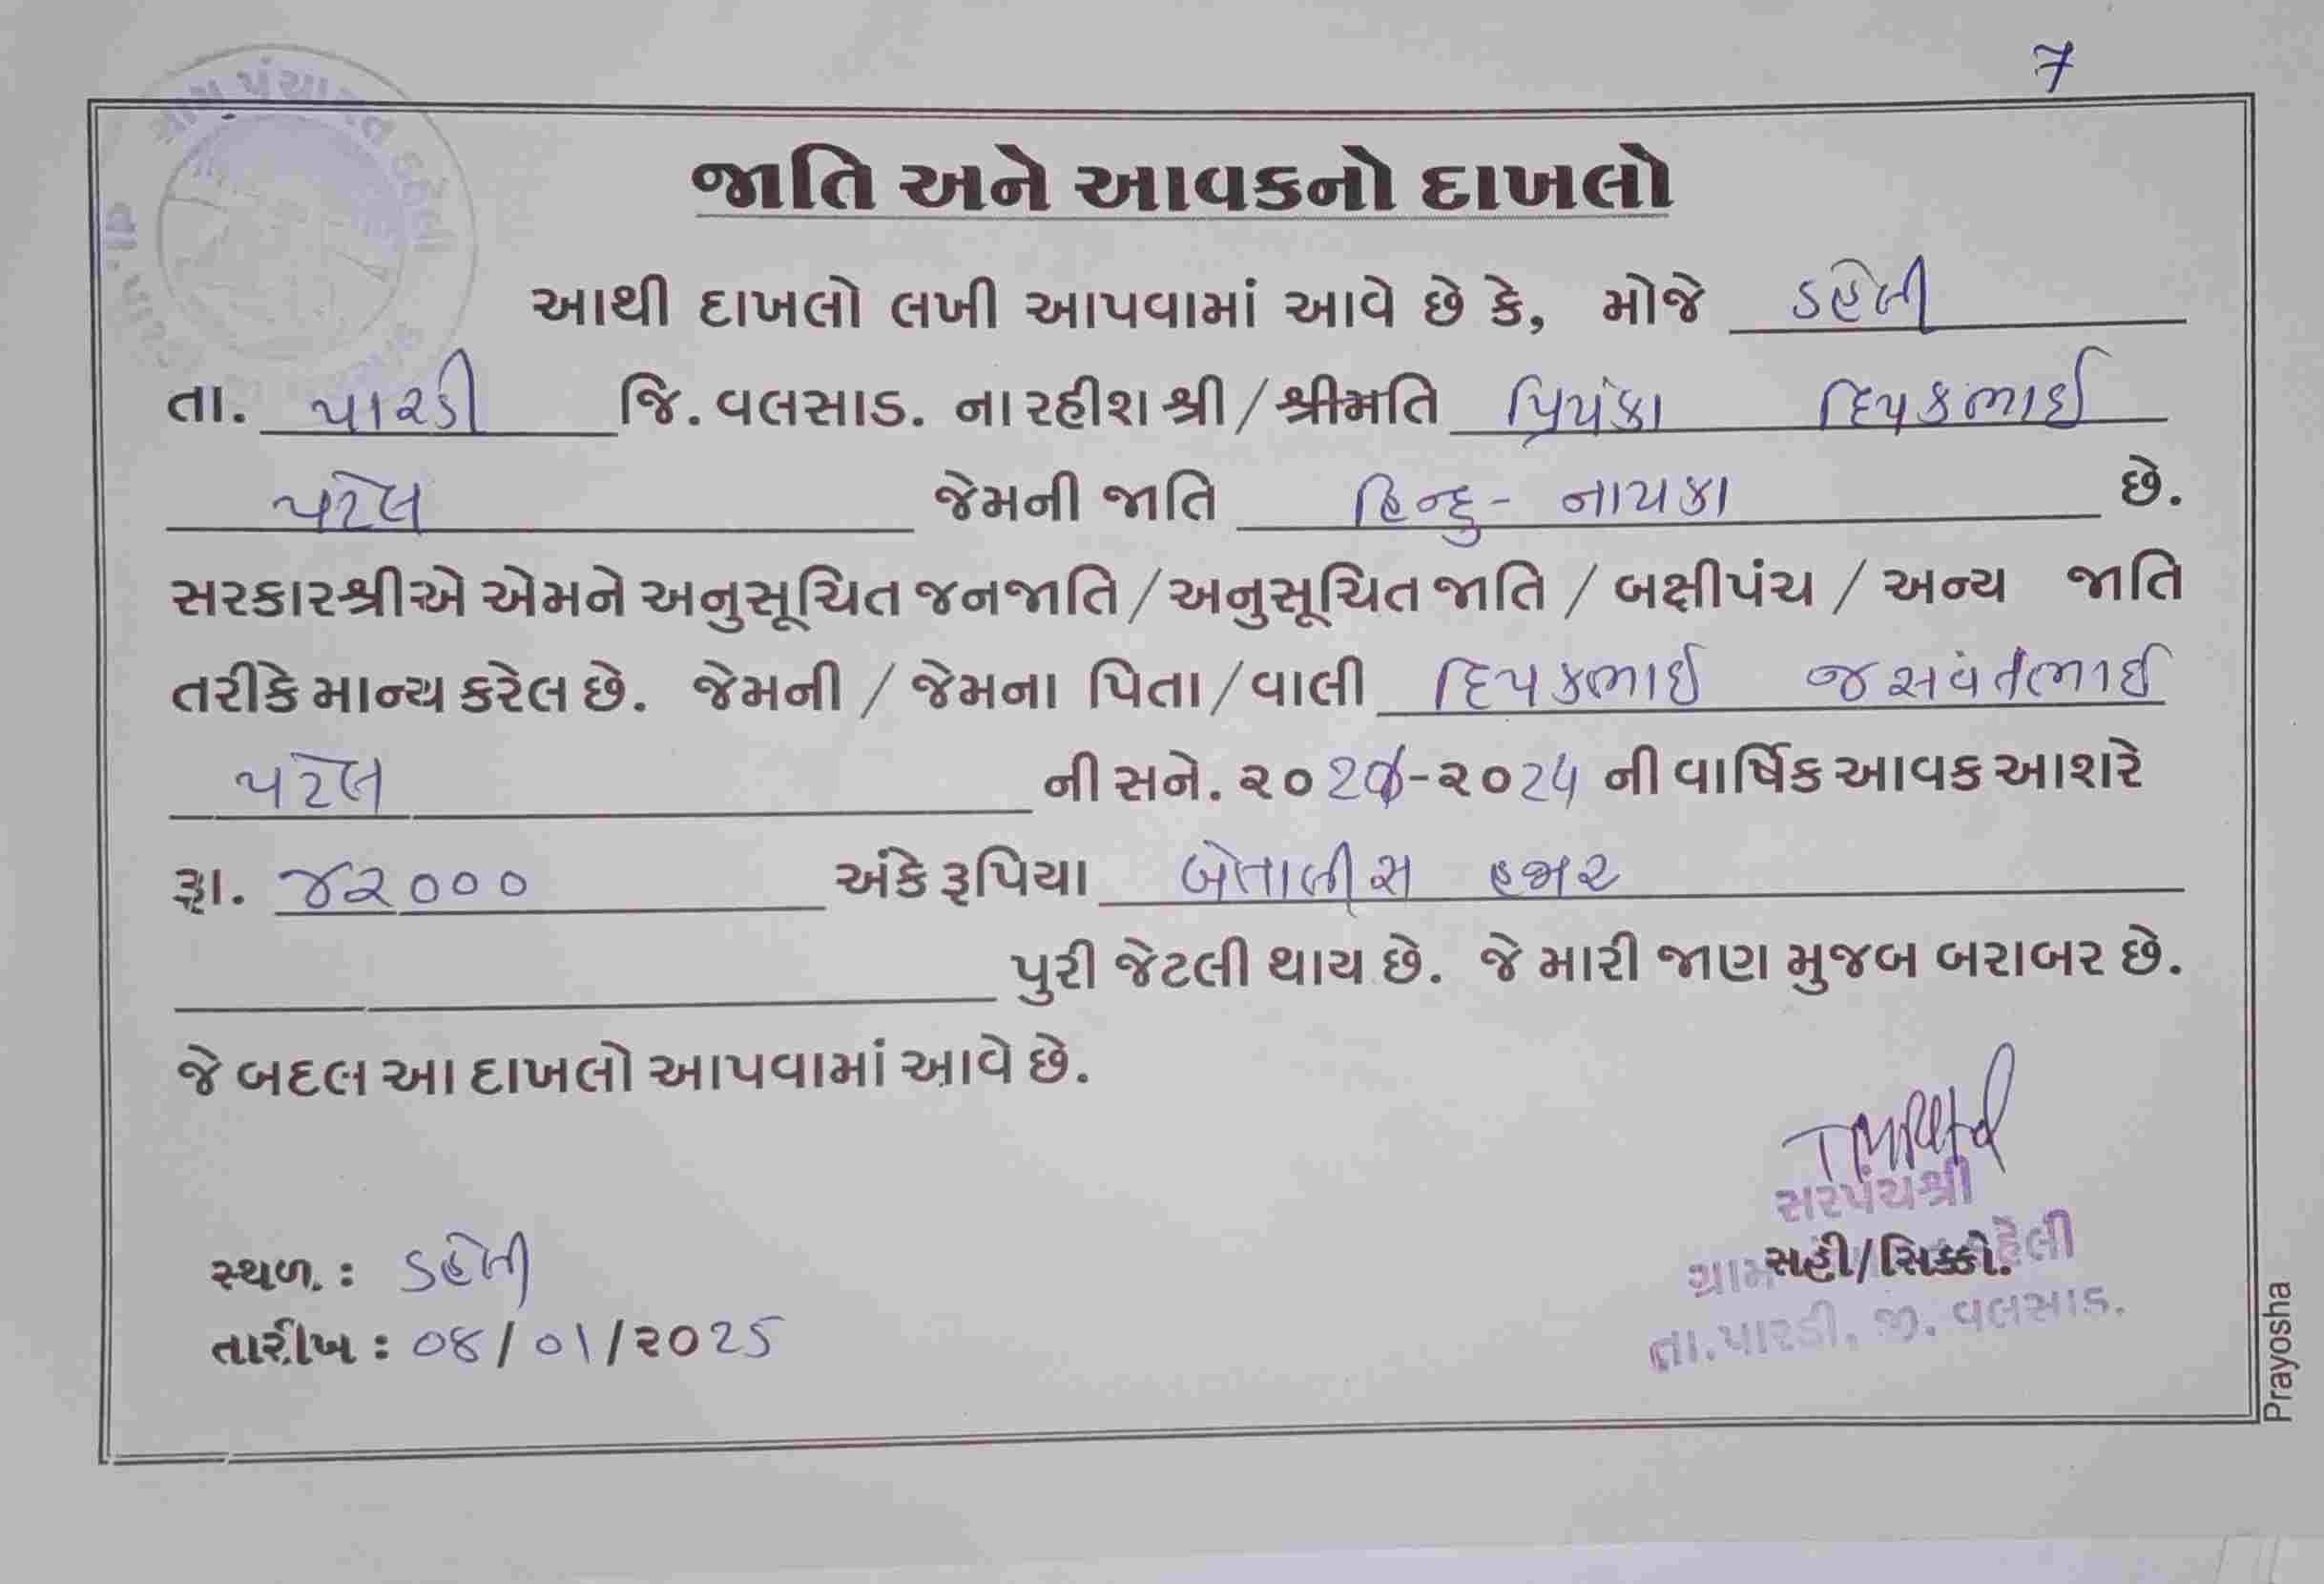 7
જાતિ અને આવકનો દાખલો
આથી દાખલો લખી આપવામાં આવે છે કે, મોજે ડહેલી
તા. પારડી જિ. વલસાડ. ના રહીશ શ્રી / શ્રીમતિ પ્રિયંકા દિપકભાઈ
પટેલ જેમની જાતિ હિન્દુ - નાયકા છે.
સરકારશ્રીએ એમને અનુસૂચિત જનજાતિ / અનુસૂચિત જાતિ / બક્ષીપંચ / અન્ય જાતિ
તરીકે માન્ય કરેલ છે. જેમની / જેમના પિતા / વાલી દિપકભાઈ જસવંતભાઈ
પટેલ ની સને. ૨૦ -૨૦24 ની વાર્ષિક આવક આશરે
રૂા. ૪૨૦૦૦ અંકે રૂપિયા બેતાલીસ હજાર
પુરી જેટલી થાય છે. જે મારી જાણ મુજબ બરાબર છે.
જે બદલ આ દાખલો આપવામાં આવે છે.
સરપંચશ્રી
સ્થળ. : ડહેલી
ગ્રામ સહી/સિક્કો. હેલી
તારીખ : ૦૪/૦૧/૨૦25
તા.પારડી, જી. વલસાડ.
Prayosha